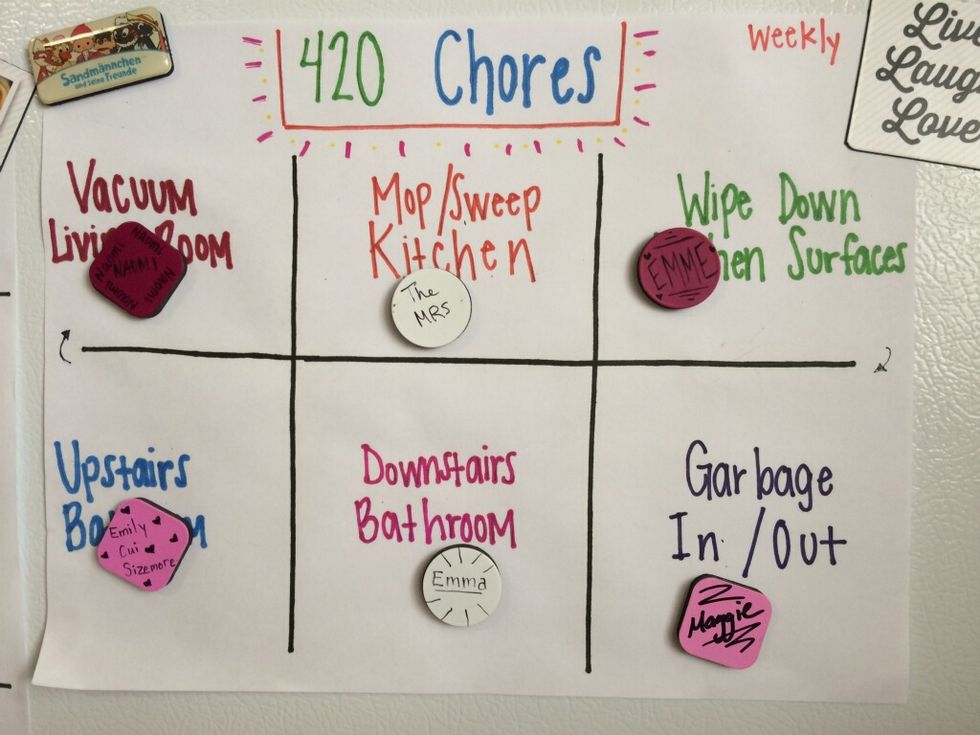 Sandmännchen
und seine Freunde
420 Chores
weekly
Live
Laugh
Love
Vacuum
Living Room
Naomi
Naomi
NAOMI
Naomi
Naomi
Mop/Sweep
Kitchen
The
MRS
Wipe Down
hen Surfaces
EMME
Upstairs
Ba m
Emily
Cui
Sizemore
Downstairs
Bathroom
Emma
Garbage
In/Out
Maggie